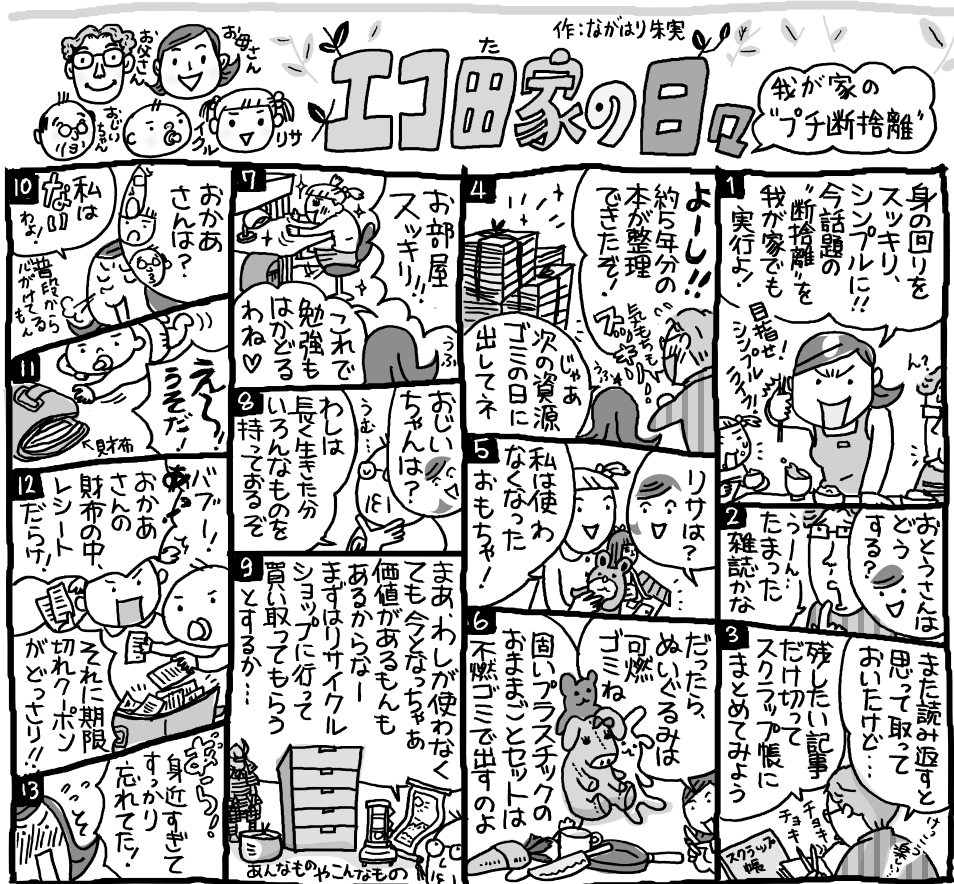 作：ながはり朱実
エコ田家の日々
た
我が家の
“プチ断捨離”
お父さん
お母さん
おじいちゃん
イクル
リサ
1
身の回りを
スッキリ、
シンプルに!!
今話題の
“断捨離”を
我が家でも
実行よ！
目指せ！
シンプルライフ!!
ん？
2
おとうさんは
どう
する？
うーん…
たまった
雑誌かな
3
また読み返すと
思って取って
おいたけど…
残したい記事
だけ切って
スクラップ帳に
まとめてみよう
チョキ
チョキ
スクラップ
帳
けっこう
楽しい…
4
よーし!!
約5年分の
本が整理
できたぞ！
気もちも
スッキリ!!
じゃあ
次の資源
ゴミの日に
出してネ
うふ
5
リサは？
私は使わ
なくなった
おもちゃ！
6
だったら、
ぬいぐるみは
可燃
ゴミね
固いプラスチックの
おままごとセットは
不燃ゴミで出すのよ
7
お部屋
スッキリ!!
これで
勉強も
はかどる
わね♡
うふ
8
おじい
ちゃんは？
うむ…
わしは
長く生きた分
いろんなものを
持っておるぞ
9
まあ、わしが使わなく
ても今となっちゃあ
価値があるもんも
あるからなー
まずはリサイクル
ショップに行って
買い取ってもらう
とするか…
あんなものやこんなもの
10
おかあ
さんは？
私は
ない
わよ！
普段から
心がけてる
もん
11
え〜っ
うそだ！
財布
12
バブー！
あっ
おかあ
さんの
財布の中、
レシート
だらけ！
それに期限
切れクーポン
がどっさり!!
13
ぎゃっ!!
身近すぎて
すっかり
忘れてた！